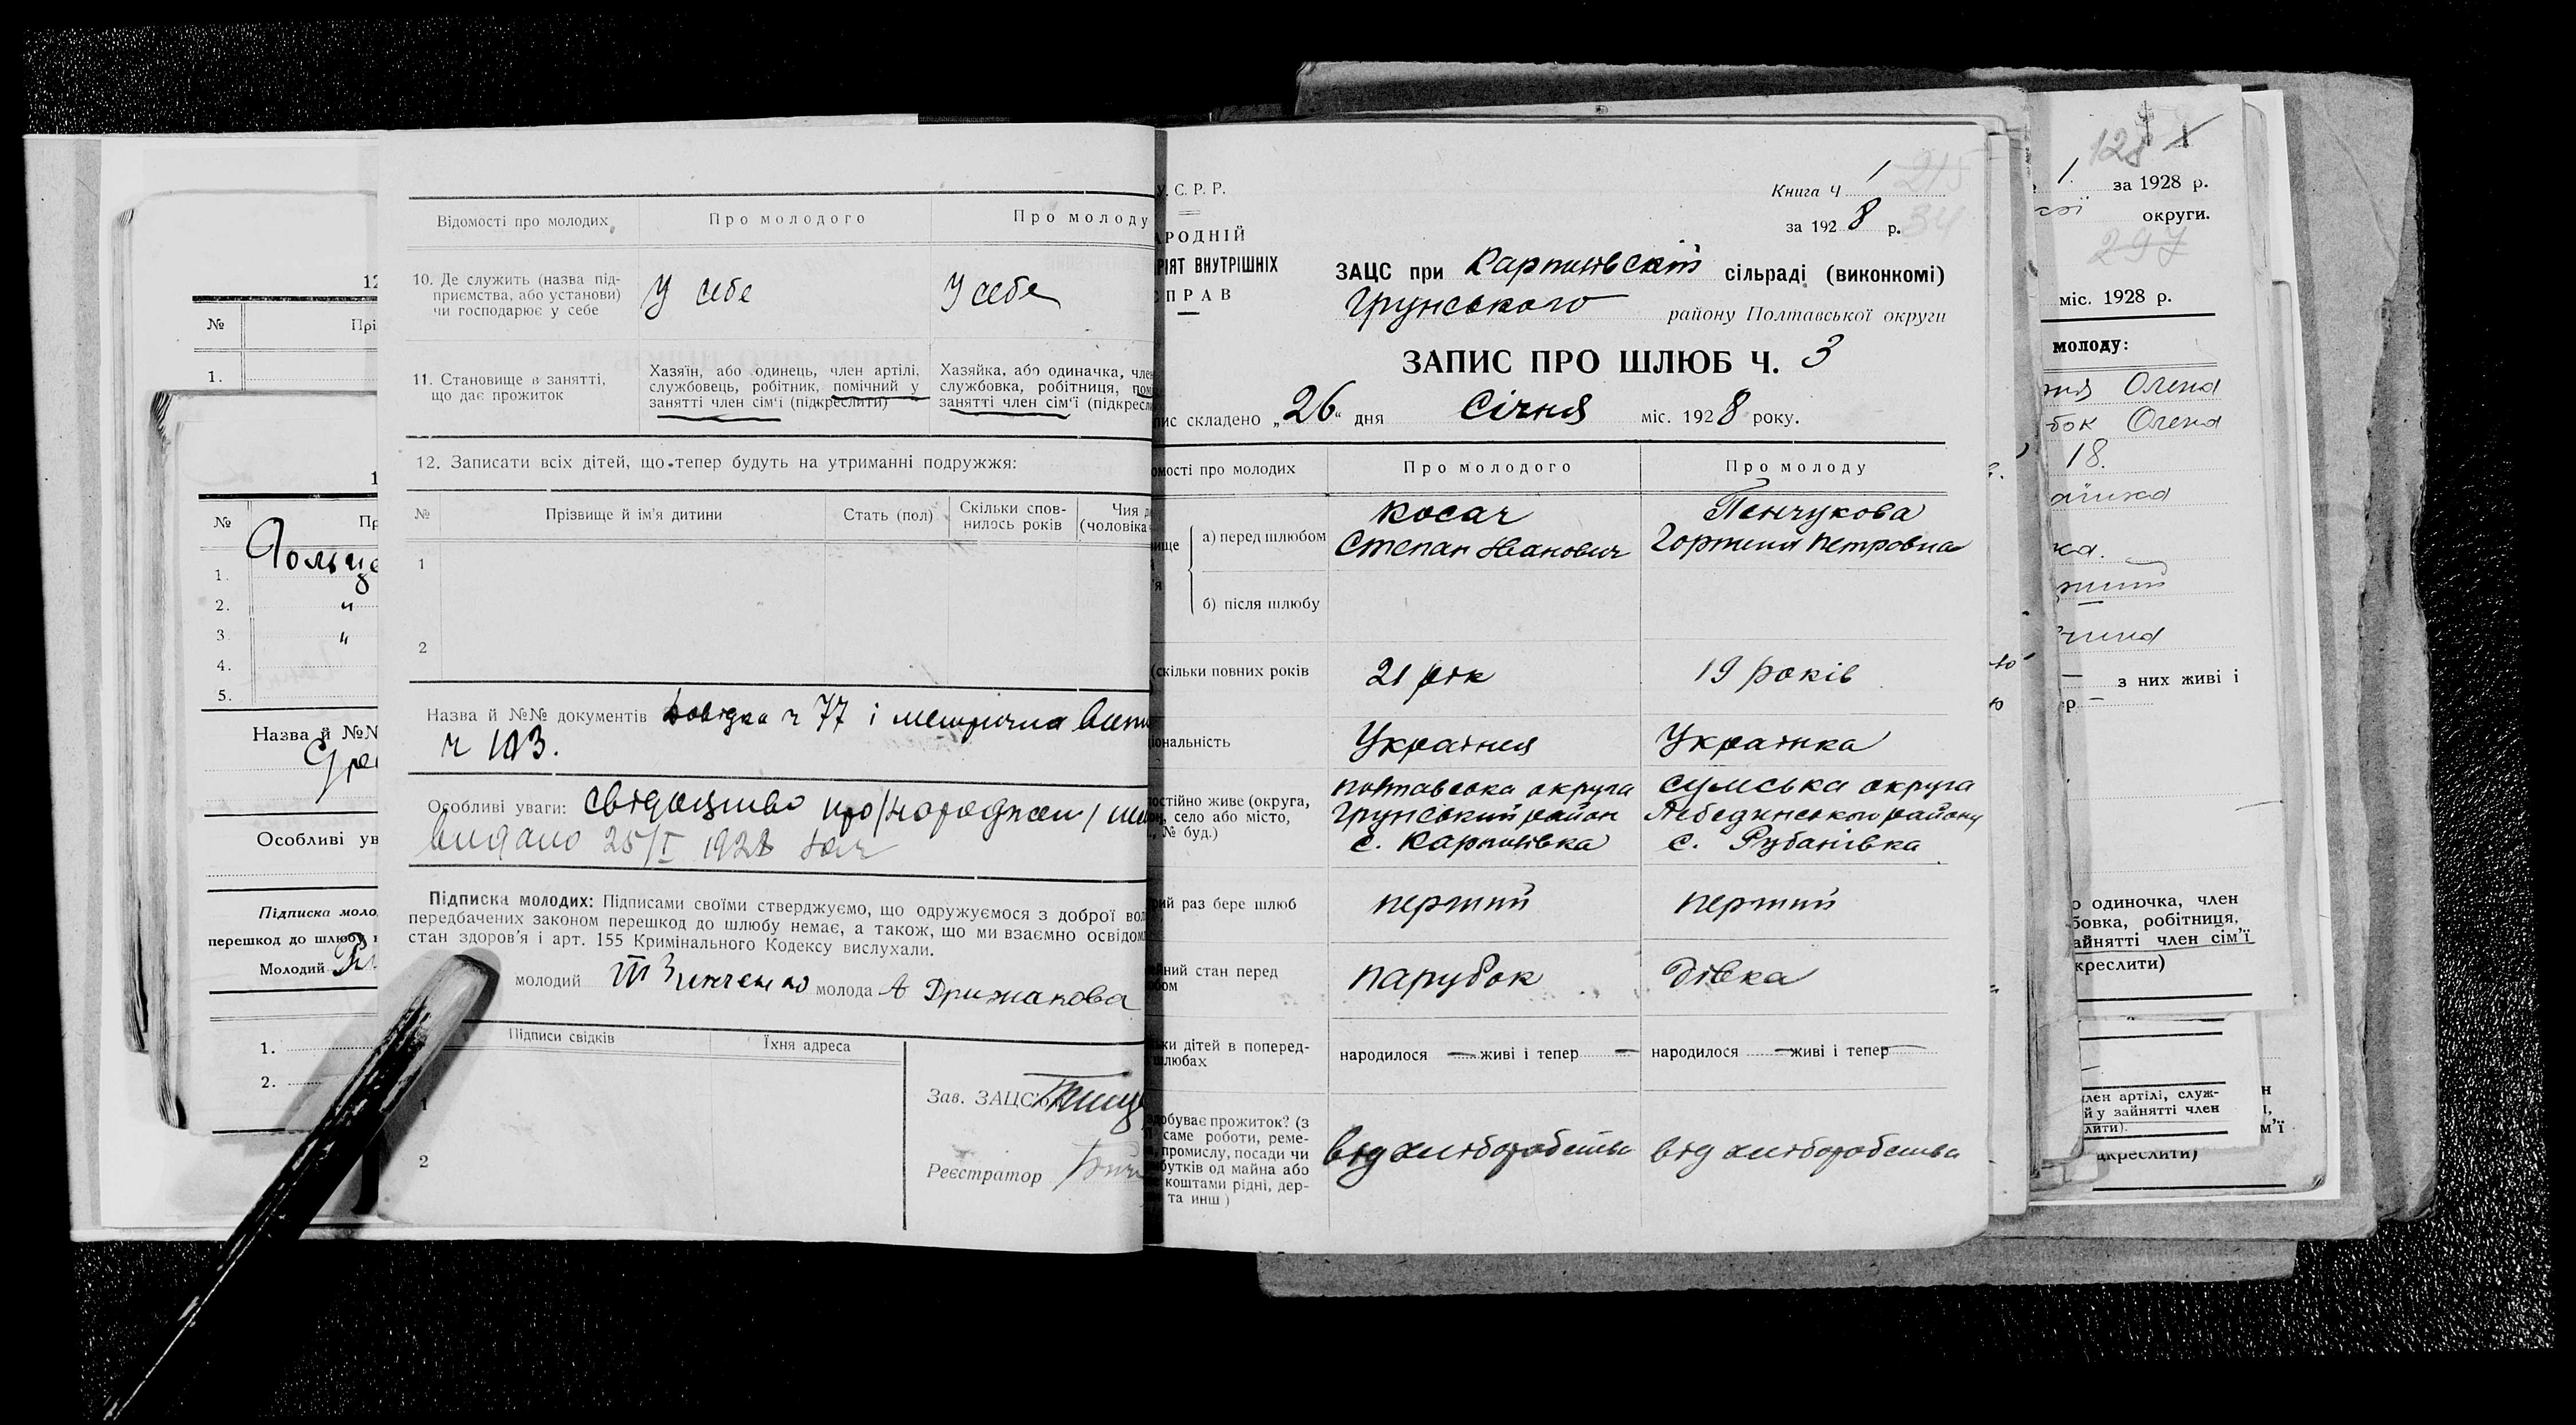 Відомості про молодих
Про молодого
Про молоду
10. Де служить (назва під-
приємства, або установи)
чи господарює у себе
У себе
У себе
11. Становище в занятті,
що дає прожиток
Хазяїн, або одинець, член артілі,
службовець, робітник, помічний у
занятті член сім'ї (підкреслити)
Хазяйка, або одиначка, член
службовка, робітниця, пом
занятті член сім'ї (підкресл
12. Записати всіх дітей, що тепер будуть на утриманні подружжя:
№
Прізвище й ім'я дитини
Стать (пол)
Скільки спов-
нилось років
Чия д
(чоловіка
1
2
Назва й №№ документів Довідка ч 77 і метрична
ч 103.
Особливі уваги: Свідоцтво про народжен
видано 25/I 1928
Підписка молодих: Підписами своїми стверджуємо, що одружуємося з доброї вол
передбачених законом перешкод до шлюбу немає, а також, що ми взаємно освідом
стан здоров'я і арт. 155 Кримінального Кодексу вислухали.
молодий Зинченко молода А Дрижакова
Підписи свідків
Їхня адреса
1
2
Зав. ЗАЦС'ом
Реєстратор
№
1.
№
1. Гольце
2. "
3 "
4.
5.
Назва й №№
Особливі ув
Підписка моло
перешкод до шлюбу
Молодий
1.
2.
У. С. Р. Р.
АРОДНІЙ
РІЯТ ВНУТРІШНІХ
СПРАВ
Книга Ч 1
215
за 1928 р.
34
ЗАЦС при Карпилівській сільраді (виконкомі)
Грунського району Полтавської округи
ЗАПИС ПРО ШЛЮБ Ч. 3
пис складено „26" дня Січня міс. 1928 року.
омості про молодих
Про молодого
Про молоду
а) перед шлюбом
Косач
Степан Іванович
Пенчукова
Горпина Петровна
б) після шлюбу
(скільки повних років
21 рік
19 років
іональність
Українец
Українка
постійно живе (округа,
н, село або місто,
, № буд.)
Полтавська округа
Грунський район
с. Карпилівка
Сумська округа
Лебединського району
с. Рубанівка
рий раз бере шлюб
перший
перший
йний стан перед
юбом
парубок
дівка
ьки дітей в поперед-
шлюбах
народилося — живі і тепер —
народилося — живі і тепер —
добуває прожиток? (з
саме роботи, реме-
, промислу, посади чи
бутків од майна або
коштами рідні, дер-
та инш)
від хліборобства
від хліборобства
128
1. за 1928 р.
округи.
297
міс. 1928 р.
молоду:
Олена
бок Олена
18.
ка.
— з них живі і
р. —
о одиночка, член
бовка, робітниця,
айнятті член сім'ї
креслити)
член артілі, служ-
й у зайнятті член
лити).
ідкреслити)